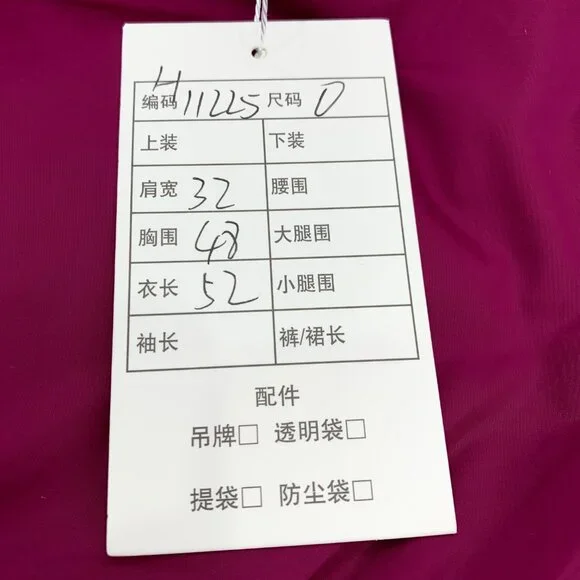 编码 H11225 尺码 0
上装 下装
肩宽 32 腰围
胸围 48 大腿围
衣长 52 小腿围
袖长 裤/裙长
配件
吊牌□ 透明袋□
提袋□ 防尘袋□